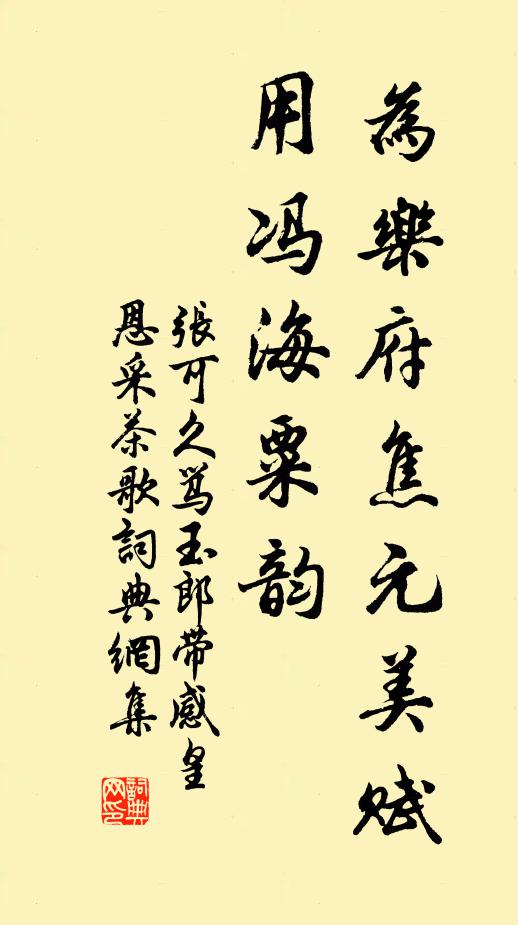 為樂府焦元美賦
用冯海粟韵
張可久骂玉郎带感皇
恩采茶歌詞典網集
詞典
网印